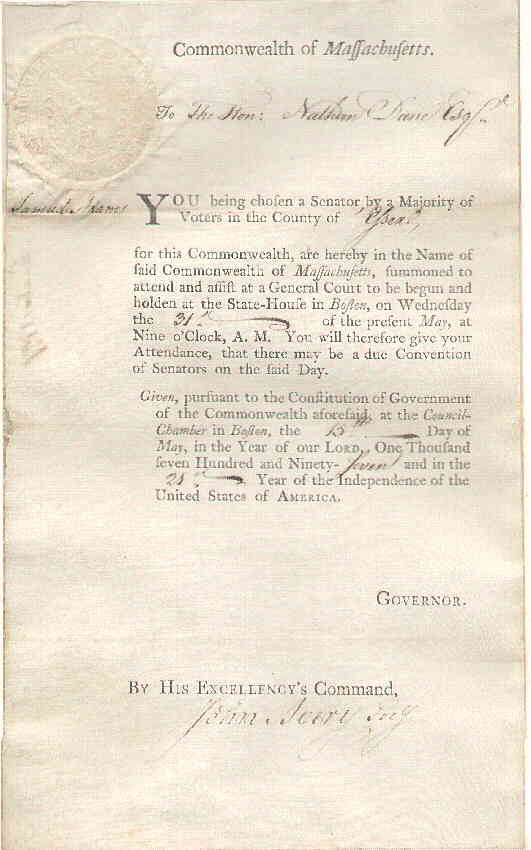 Commonwealth of Maſſachuſetts.
To The Hon: Nathan Dane Esqr
Samuel Adams
YOU being choſen a Senator by a Majority of
Voters in the County of Eſſex,
for this Commonwealth, are hereby in the Name of
ſaid Commonwealth of Maſſachuſetts, ſummoned to
attend and aſſiſt at a General Court to be begun and
holden at the State-Houſe in Boſton, on Wedneſday
the 31st of the preſent May, at
Nine o'Clock, A. M. You will therefore give your
Attendance, that there may be a due Convention
of Senators on the ſaid Day.
Given, purſuant to the Conſtitution of Government
of the Commonwealth aforeſaid, at the Council-
Chamber in Boſton, the 15th Day of
May, in the Year of our LORD, One Thouſand
ſeven Hundred and Ninety-ſeven and in the
21st Year of the Independence of the
United States of AMERICA.
GOVERNOR.
BY HIS EXCELLENCY's Command,
John Avery Secy